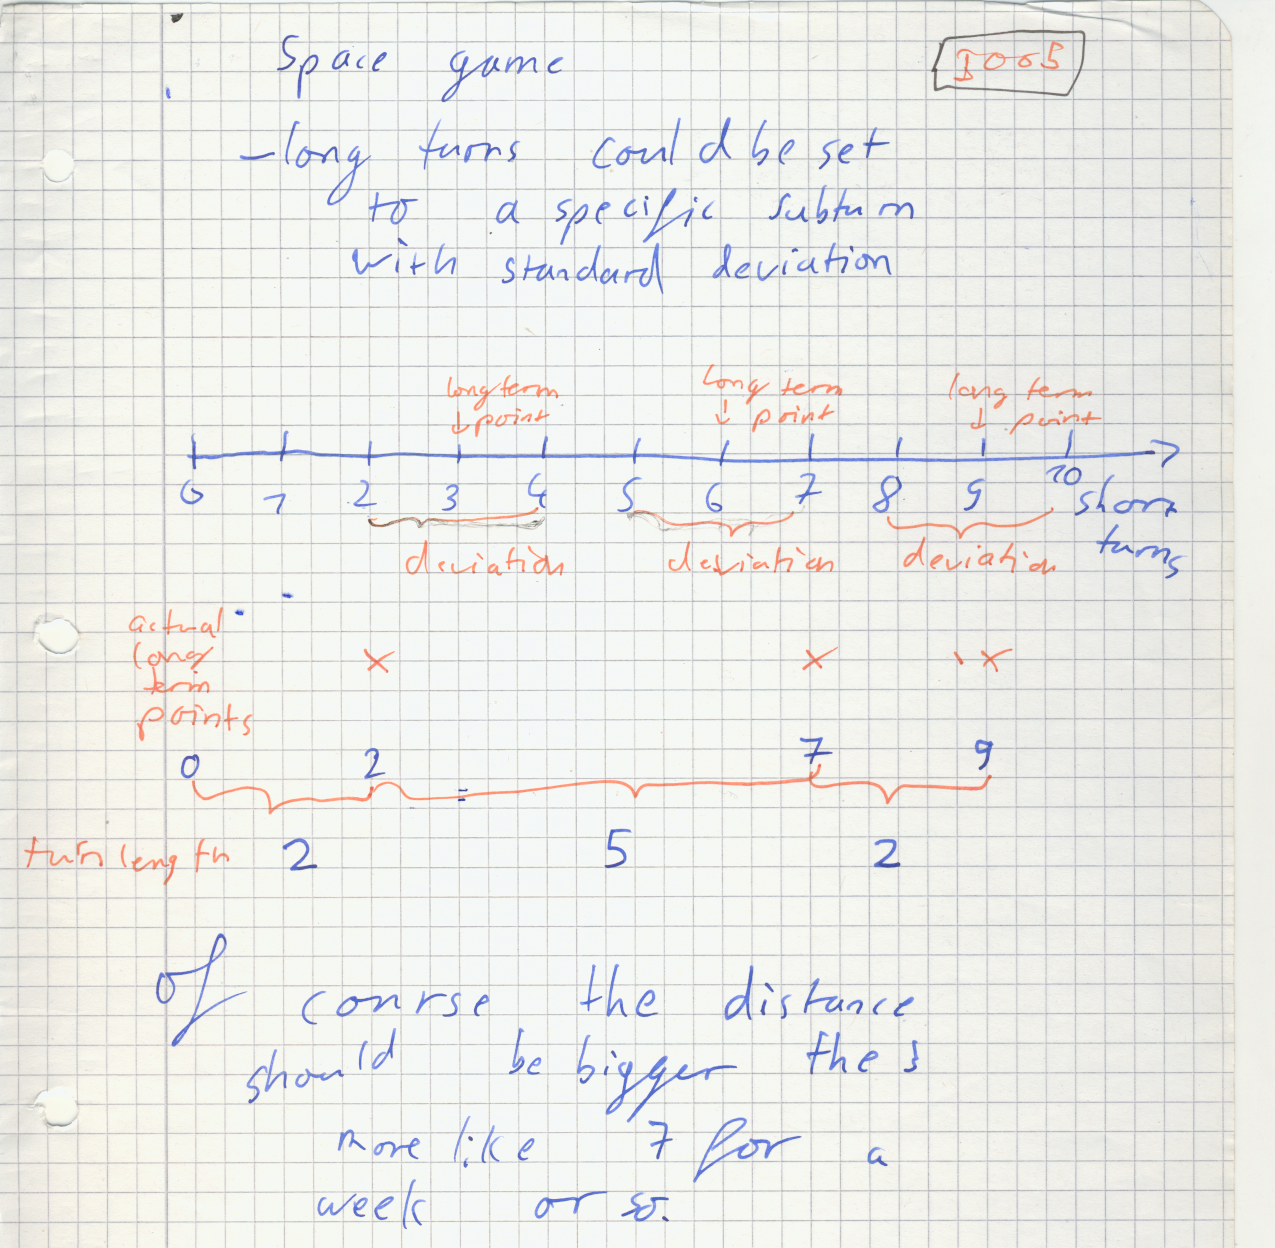 Space game
I005
-long turns could be set
to a specific subturn
with standard deviation
long term
point
long term
point
long term
point
0 1 2 3 4 5 6 7 8 9 10 short
turns
deviation deviation deviation
actual
long
term
points
0 2 7 9
turn length 2 5 2
of course the distance
should be bigger the 3
more like 7 for a
week or so.